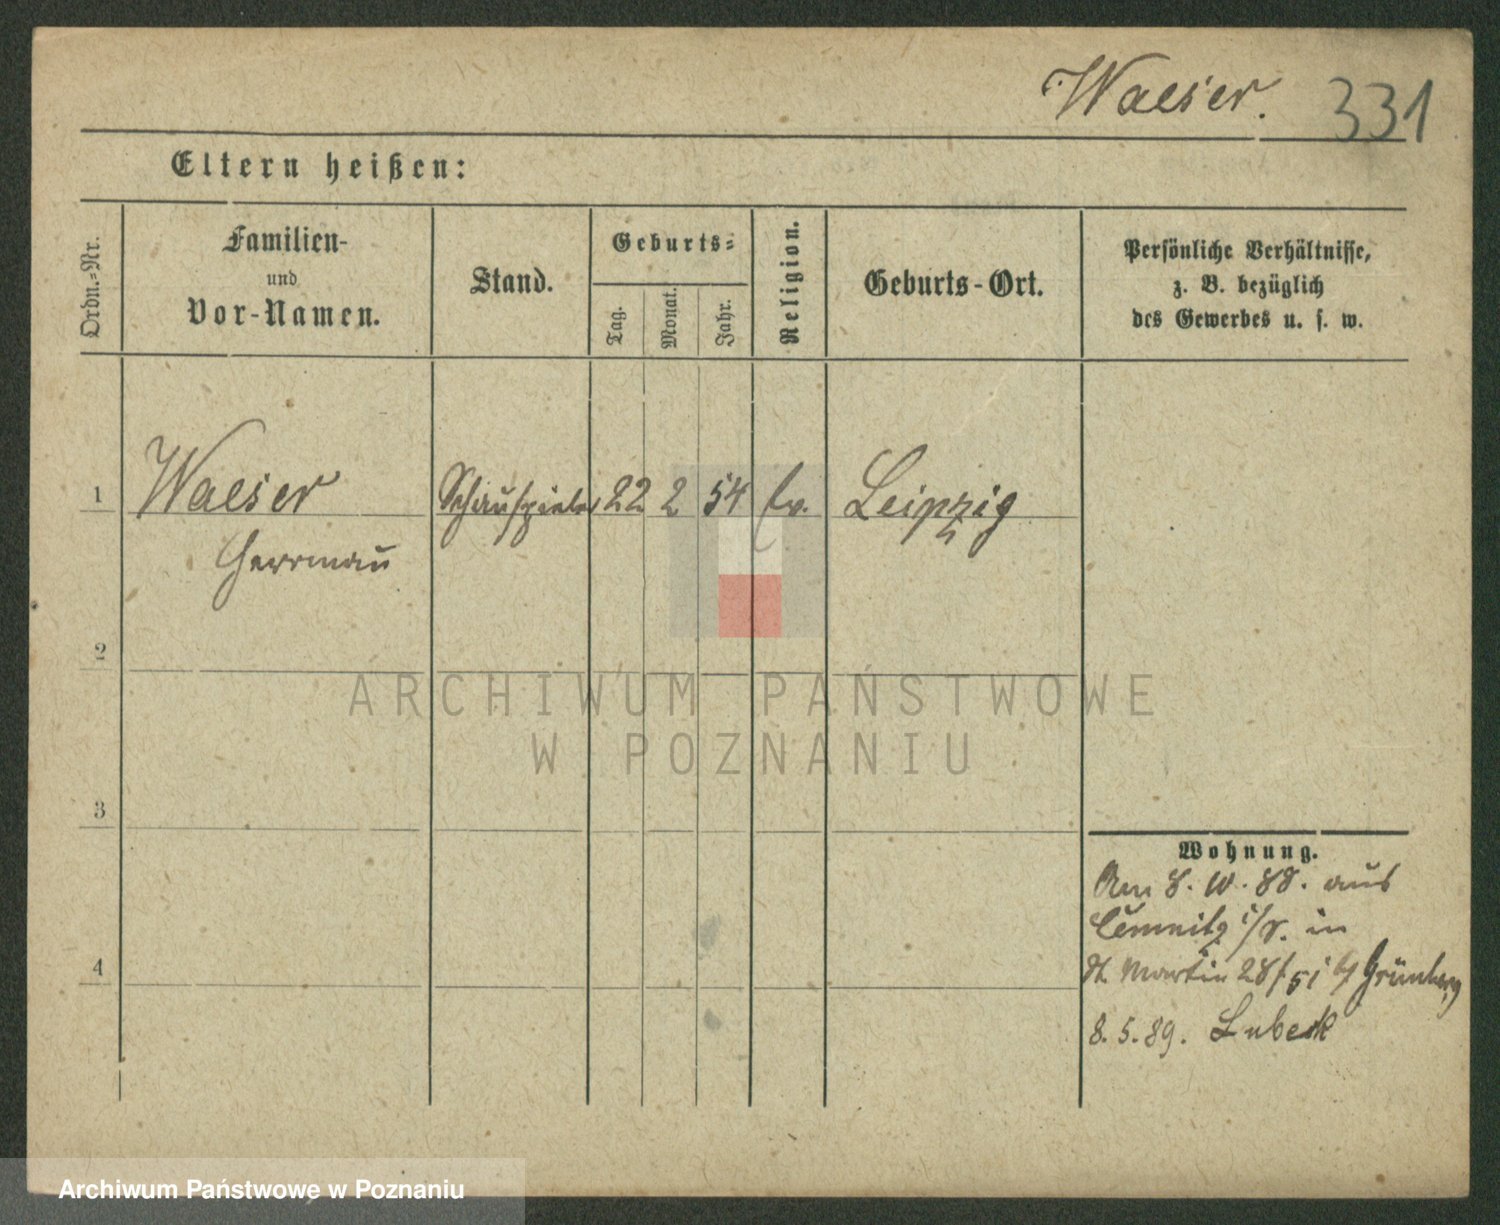 Waeser. 331
Eltern heißen:
Ordn.-Nr.
Familien-
und
Vor-Namen.
Stand.
Geburts-
Tag.
Monat.
Jahr.
Religion.
Geburts-Ort.
Persönliche Verhältnisse,
z. B. bezüglich
des Gewerbes u. s. w.
1 Waeser Schauspieler 22 2 54 Ev. Leipzig
Herrmañ
2
ARCHIWUM PAŃSTWOWE
W POZNANIU
3
Wohnung.
Am 8. 10. 88. aus
in
4
St. Martin 28/51 Grünberg
8. 5. 89. Lubeck
Archiwum Państwowe w Poznaniu